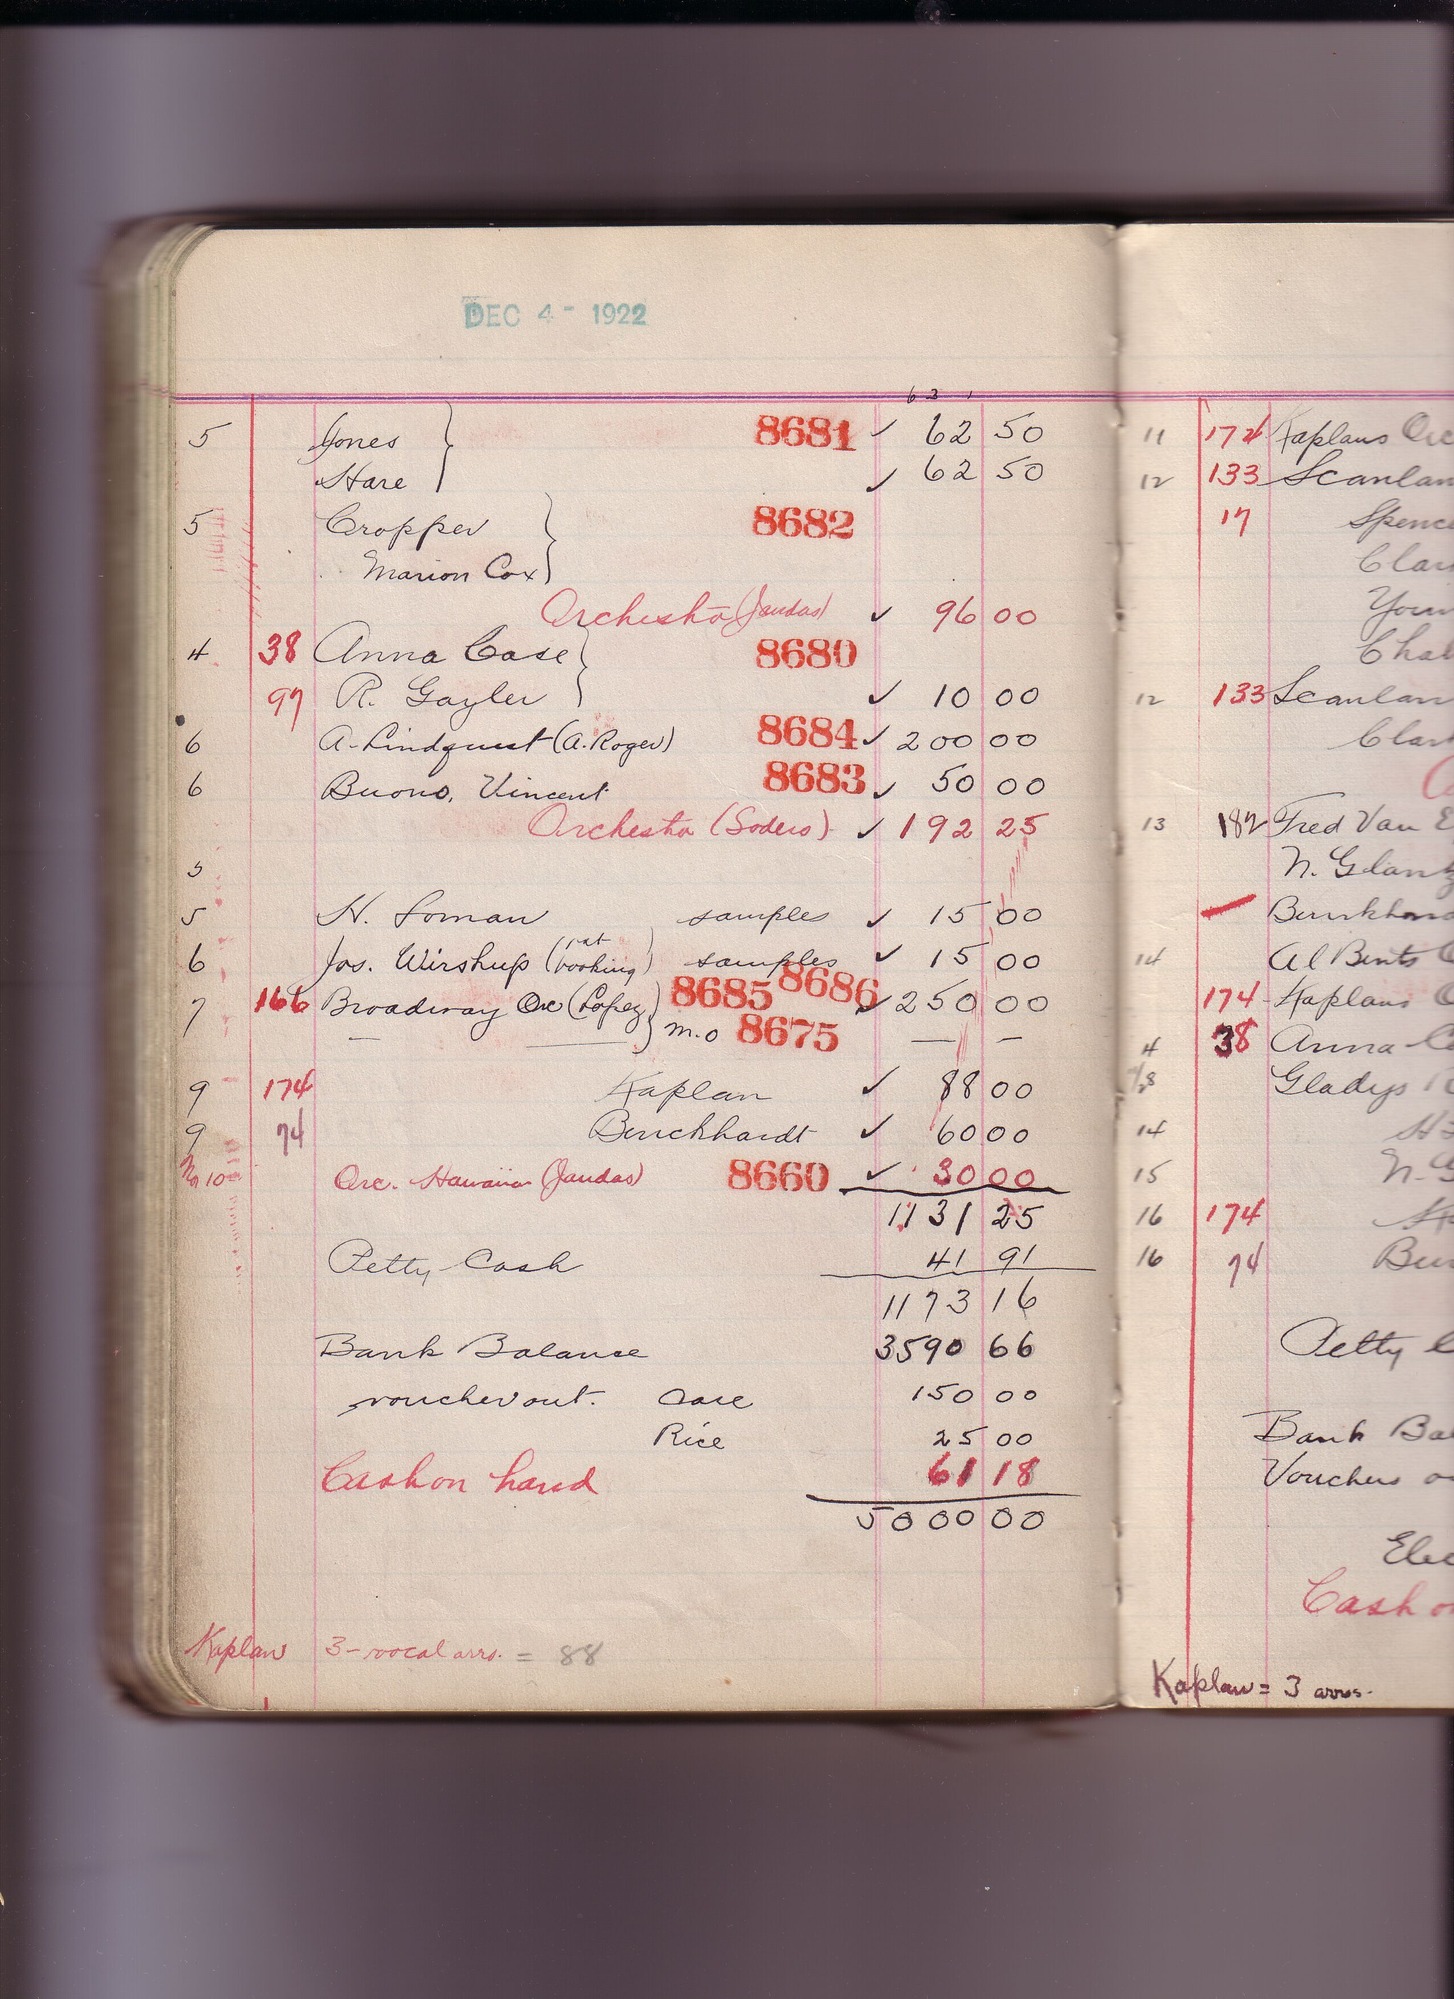 DEC 4 - 1922
6 2 1
5 Jones 8681 ✓ 62 50
Hare ✓ 62 50
5 Cropper 8682
Marion Cox
Orchestra (Jaudas) ✓ 96 00
4 38 Anna Case 8680
97 R. Gayler ✓ 10 00
6 A. Lindquist (A. Roger) 8684 ✓ 200 00
6 Buono, Vincent 8683 ✓ 50 00
Orchestra (Sodero) ✓ 192 25
5
5 H. Loman samples ✓ 15 00
6 Jos. Wirshup (pat booking) samples ✓ 15 00
7 166 Broadway Orc (Lopez) 8685 8686 ✓ 250 00
— m.o 8675 — —
9 174 Kaplan ✓ 88 00
9 74 Burckhardt ✓ 60 00
10 Orc. Hawaiian (Jaudas) 8660 ✓ 30 00
1131 25
Petty Cash 41 91
1173 16
Bank Balance 3590 66
voucher out. Case 150 00
Rice 25 00
Cash on hand 61 18
5000 00
Kaplan 3-vocal arrs. = 88
11 174 Kaplans Orc
12 133 Scanlan
17 Spence
Clar
Youn
Chal
12 133 Scanlan
Clar
13 182 Fred Van E
N. Glantz
Burkha
14 Al Bints
174 Kaplans O
4 38 Anna C
Gladys R
14
15
16 174
16 74 Bur
Petty C
Bank Bal
Vouchers o
Elec
Cash o
Kaplan = 3 arrs.